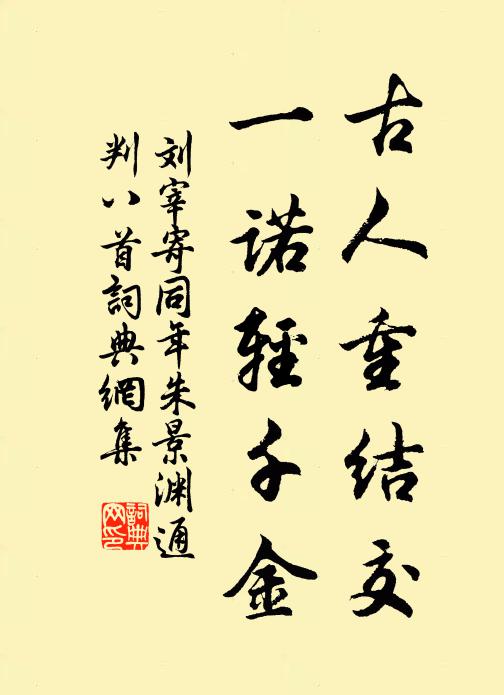 古人重结交
一诺輕千金
刘宰寄同年朱景渊通
判八首詞典網集
詞典
网印